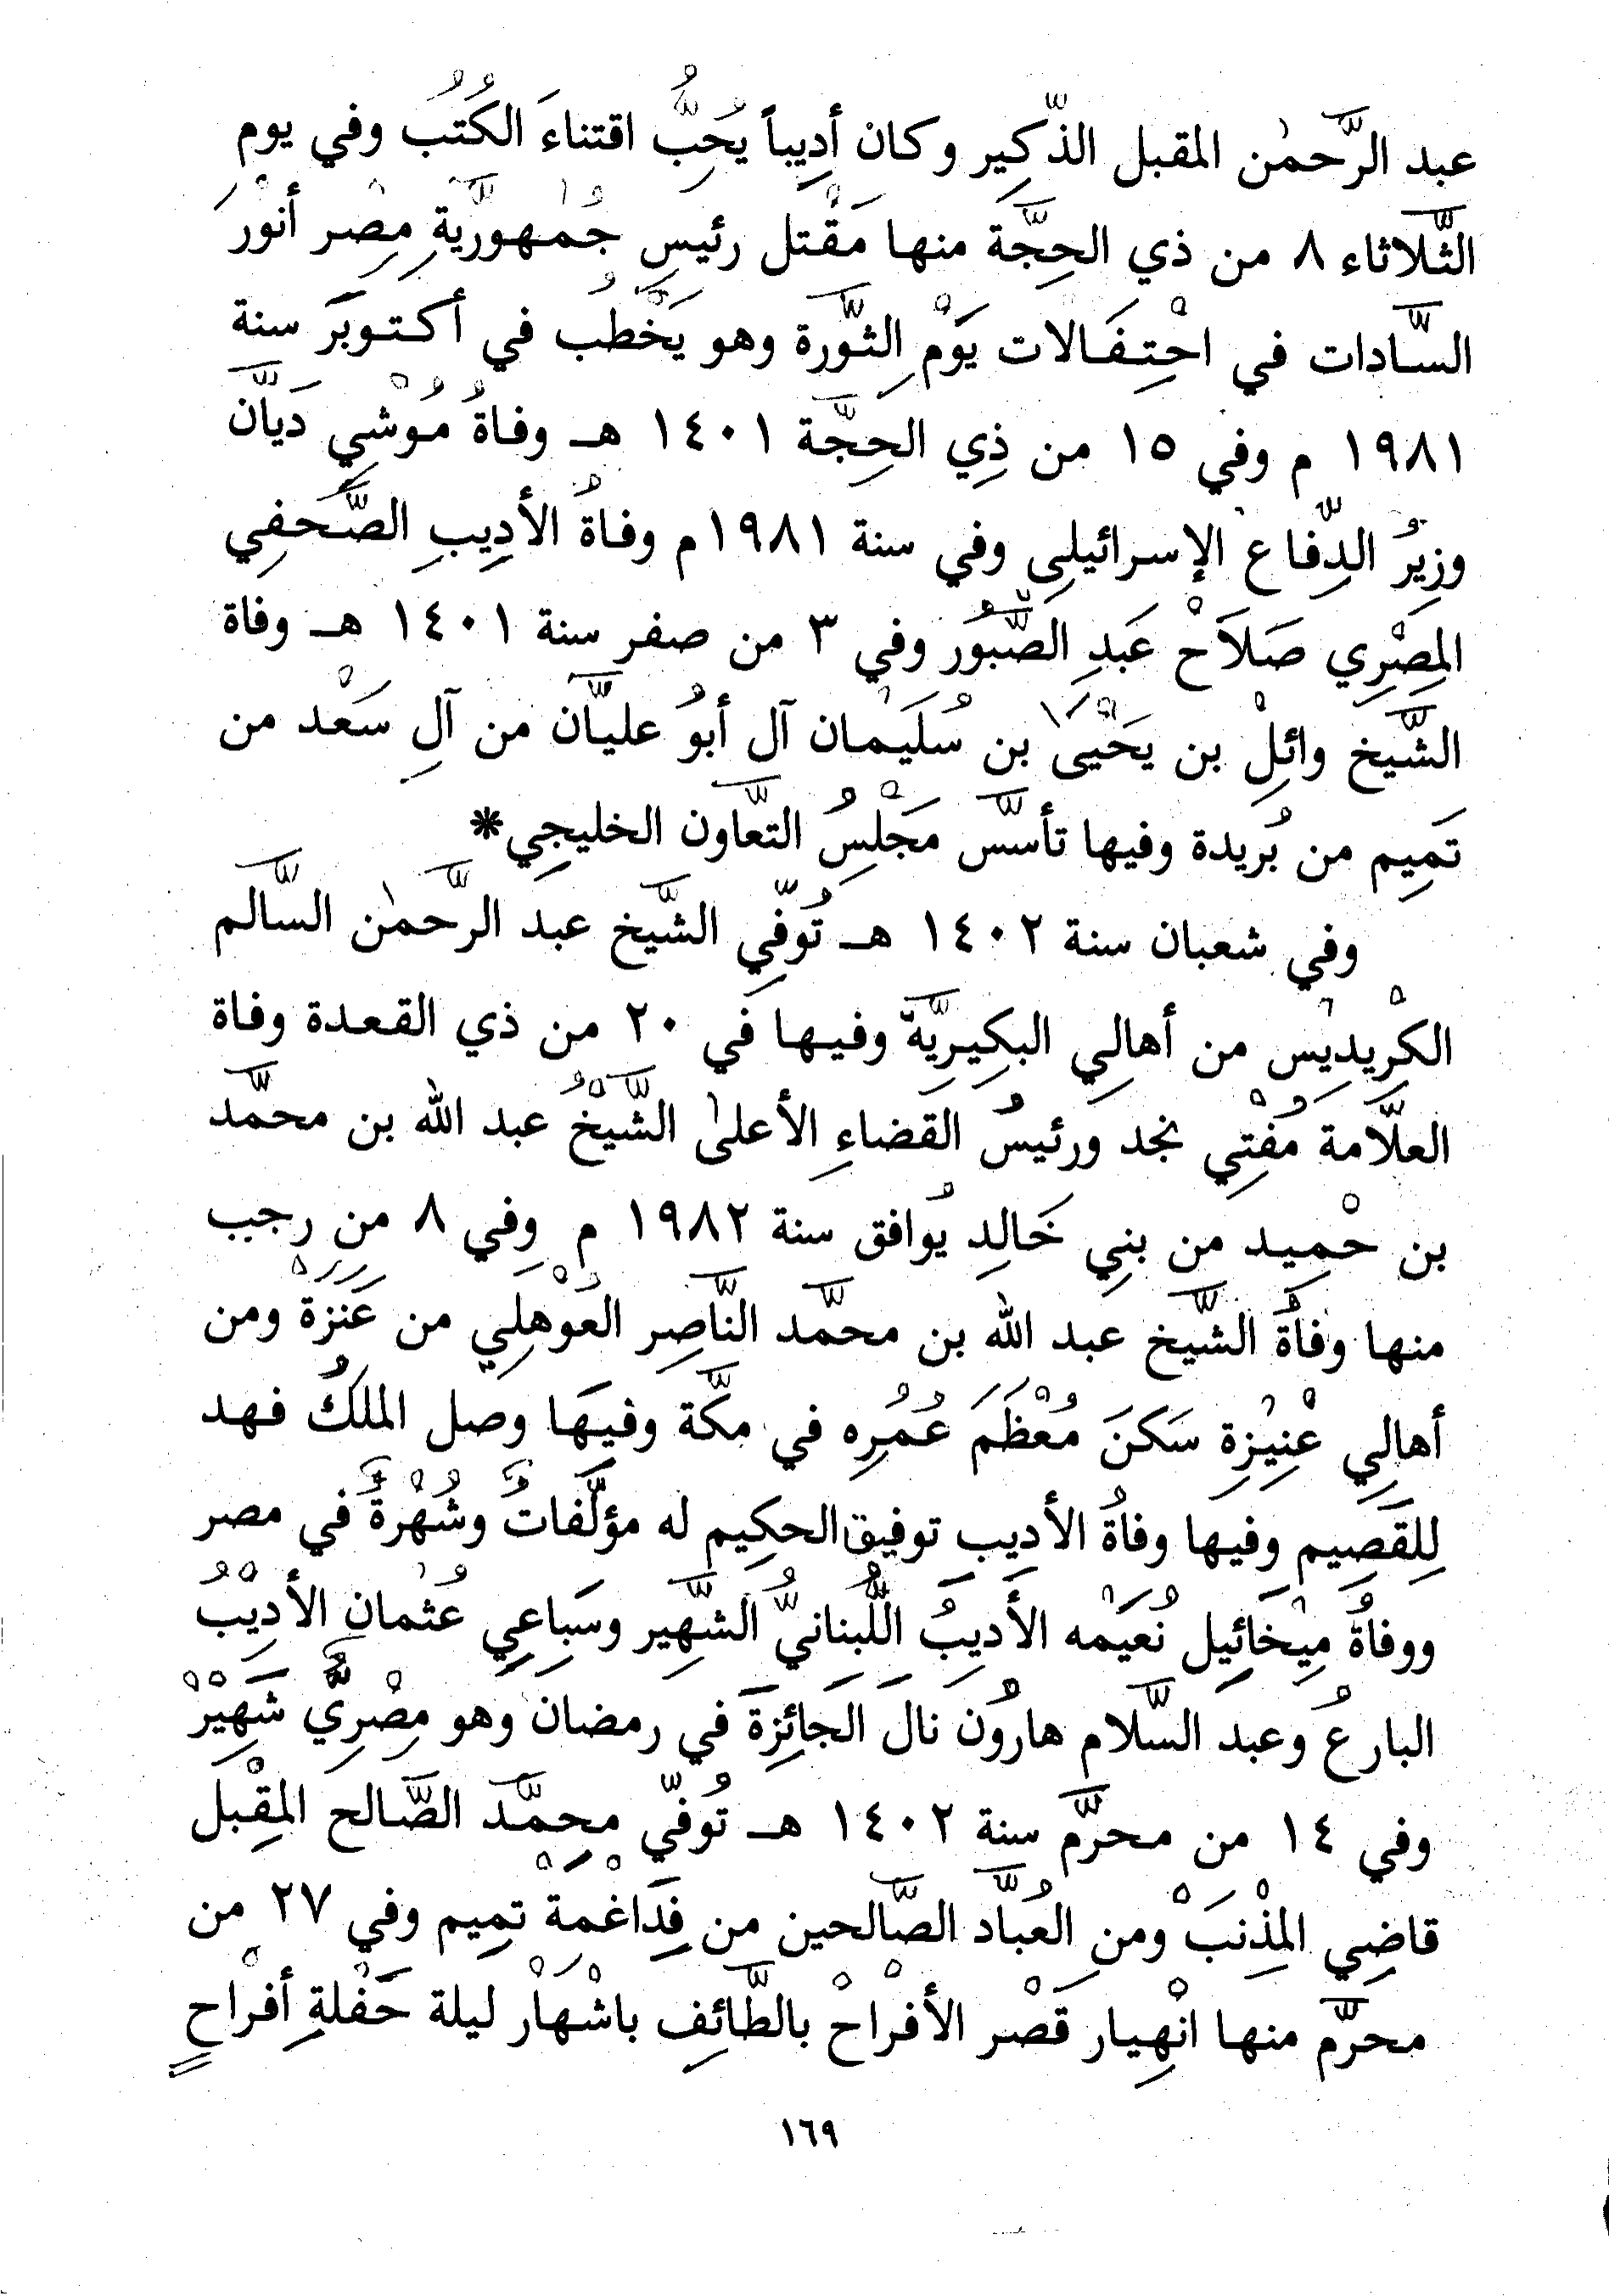 عبد الرَّحمٰن المقبل الذّكِير وكانْ أدِيباً يُحِبُّ اقتناءَ الكُتُب وفي يوم
الثَّلاثاء ٨ من ذي الحِجَّة منها مَقْتل رئيسِ جُمْهورِيَّةِ مِصْر أنوْرَ
السَّادات في احْتِفَالات يَوْمِ الثَّورة وهو يَخْطُب في أكتوبَرَ سنة
١٩٨١ م وفي ١٥ من ذِي الحِجَّة ١٤٠١ هـ وفاةُ مُوْشي دَيَّان
وزِيرُ الدِّفاع الإسرائيلي وفي سنة ١٩٨١م وفاةُ الأدِيبِ الصَّحَفِي
المِصْرِي صَلَاحْ عَبدِ الصَّبُور وفي ٣ من صفر سنة ١٤٠١ هـ وفاة
الشَّيخ وائلْ بن يَحْيىٰ بن سُلَيْمان آل أبوُ عليَّان من آلِ سَعْد من
تَمِيم من بُريدة وفيها تأسَّس مَجْلسُ التَّعاون الخليجِي*
وفي شعبان سنة ١٤٠٢ هـ تُوفّي الشَّيخ عبد الرَّحمٰن السَّالم
الكْرِيدِيْس من أهالِي البكِيرِيَّة وفيها في ٢٠ من ذي القعدة وفاة
العلَّامة مُفْتِي نجَد ورئيسُ القضاءِ الأعلىٰ الشَّيْخُ عبد الله بن محمَّد
بن حْمِيد من بنِي خَالِد يُوافق سنة ١٩٨٢ م وفي ٨ من رجب
منها وفاةُ الشَّيخ عبد الله بن محمَّد النَّاصِر العُوْهلِي من عَنَزِةْ ومن
أهالِي عْنِيْزِة سَكنَ مُعْظَمَ عُمُرِه في مكَّة وفيهَا وصل الملكُ فهد
لِلقَصِيم وفيها وفاةُ الأدِيب توفيق الحكِيم له مؤلَّفاتٌ وشُهْرةٌ في مصر
ووفاةُ مِيْخَائِيل نُعَيْمَه الأديبُ اللُّبنانيُّ الشَّهِير وسَبَاعِي عُثمان الأدِيْبُ
البارعُ وعبد السَّلام هارُون نالَ الجَائِزةَ في رمضان وهو مِصْرِيٌّ شَهِيْرْ
وفي ١٤ من محرَّم سنة ١٤٠٢ هـ تُوفّي محِمَّد الصَّالح المِقْبل
قاضِي المِذْنبَ ومن العُبَّاد الصَّالحين من فِدَاغمَة تمِيم وفي ٢٧ من
محرَّم منها انْهِيار قَصْر الأفْراحْ بالطَّائِف باشْهَارْ ليلة حَفْلةِ أفْراحٍ
١٦٩